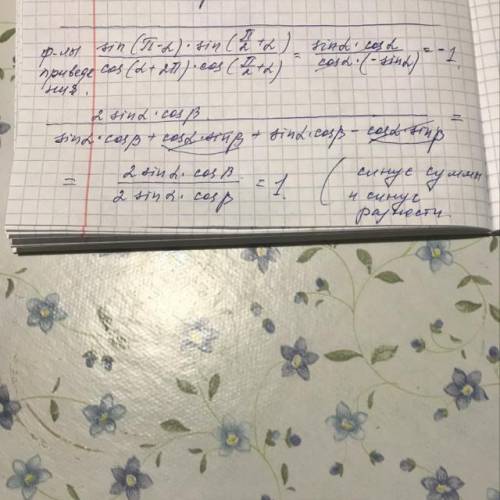 ф-лы sin(π-α)·sin(π/2+α) / cos(α+2π)·cos(π/2+α) = sinα·cosα / cosα·(-sinα) = -1.
приведе
ния.
2 sinα·cosβ / sinα·cosβ + cosα·sinβ + sinα·cosβ - cosα·sinβ =
= 2 sinα·cosβ / 2 sinα·cosβ = 1. (синус суммы
и синус
разности